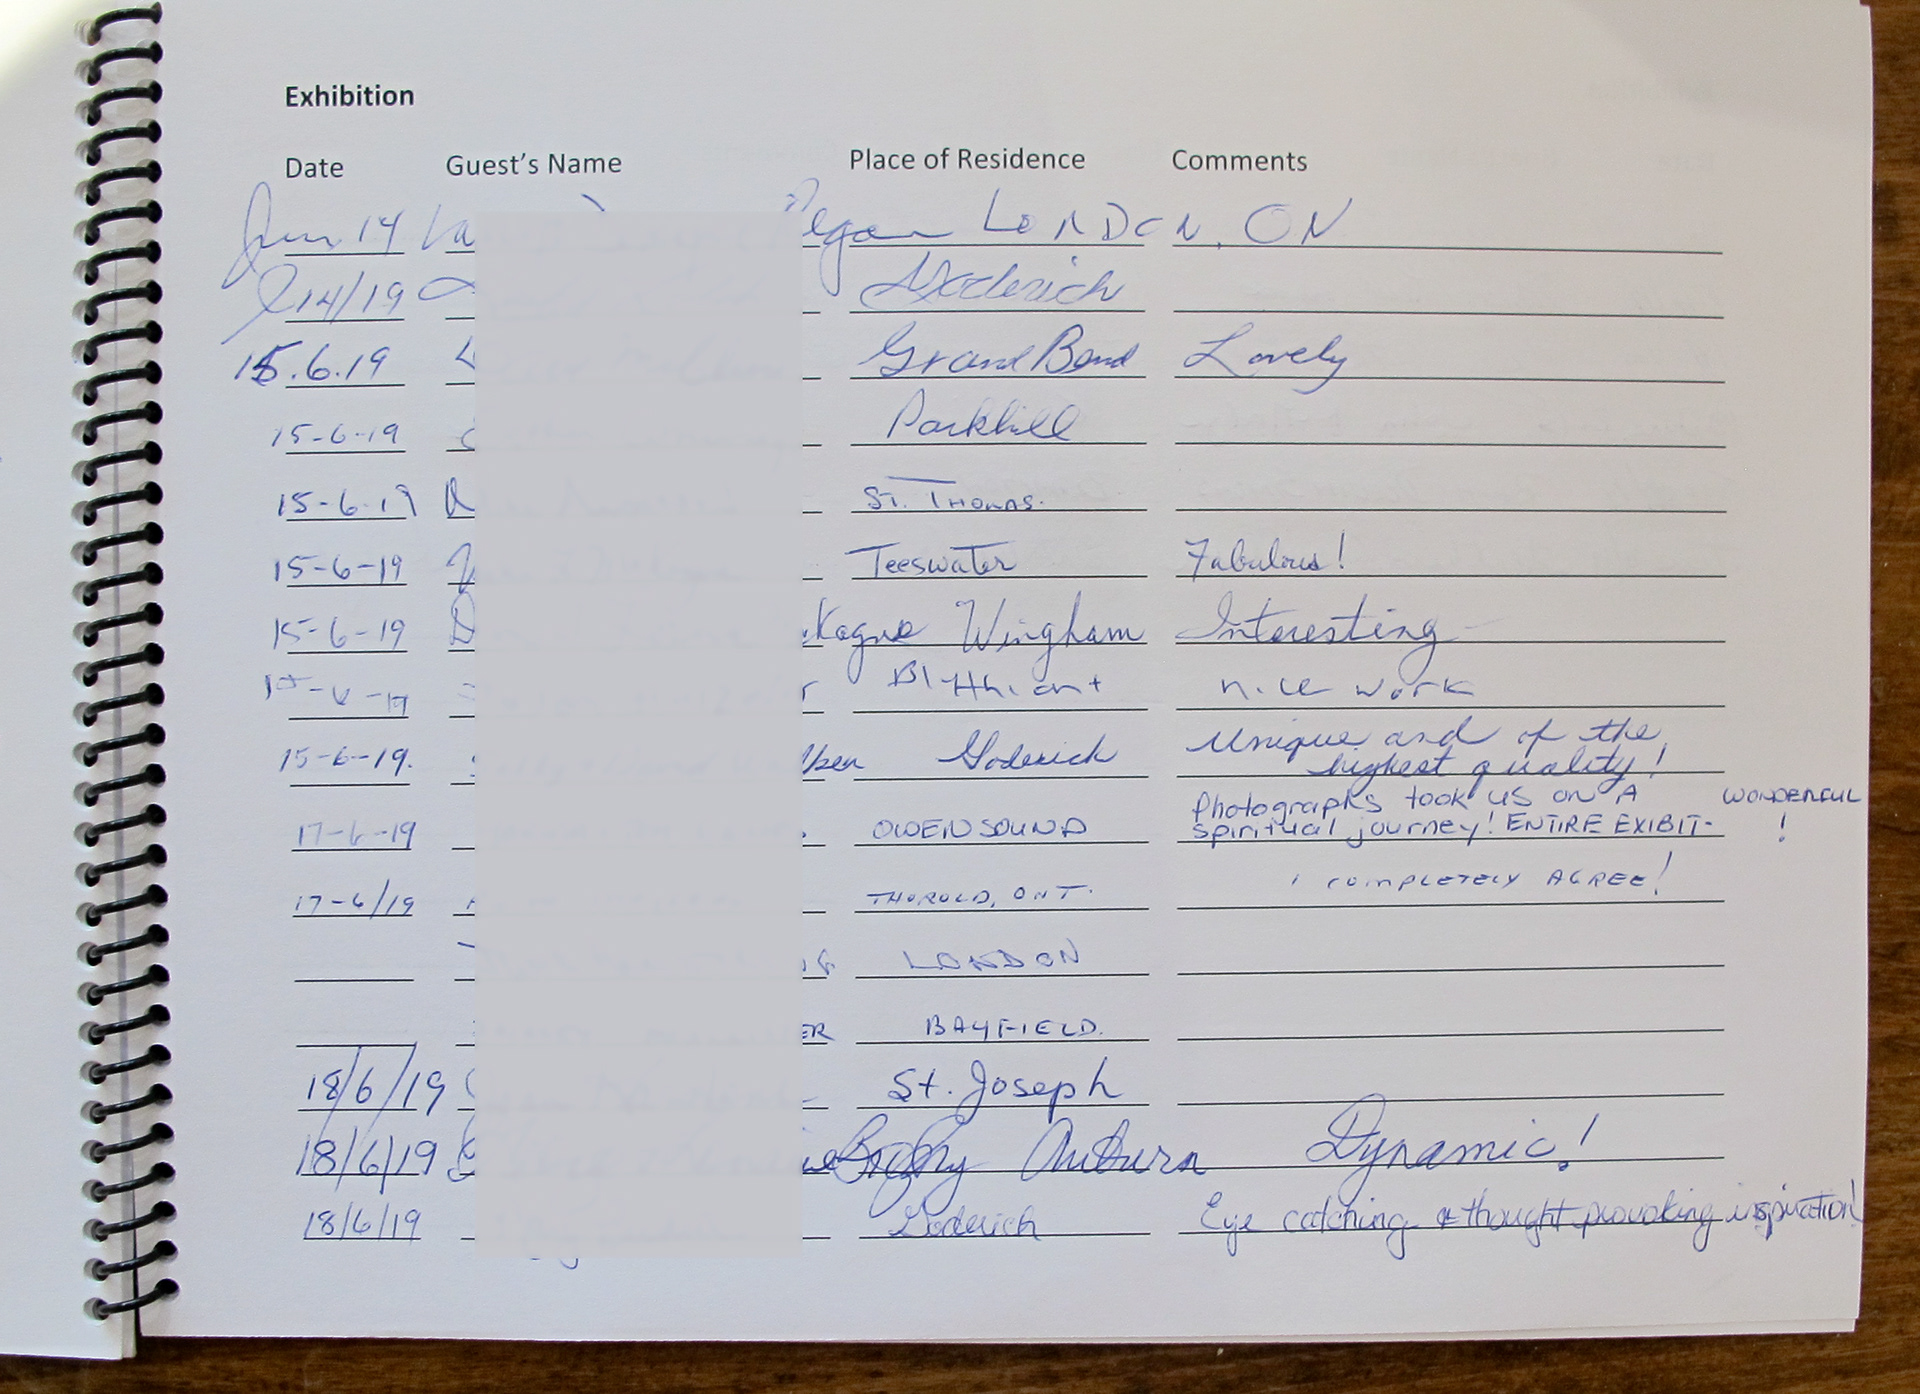 Exhibition
Date Guest's Name Place of Residence Comments
Jun 14 LONDON, ON
14/19 Goderich
15.6.19 Grand Bend Lovely
15-6-19 Parkhill
15-6-19 ST. THOMAS.
15-6-19 Teeswater Fabulous!
15-6-19 Wingham Interesting
nice work
15-6-19. Goderich Unique and of the
highest quality!
Photographs took us on A WONDERFUL
17-6-19 OWEN SOUND spiritual journey! ENTIRE EXIBIT- !
17-6/19 THOROLD, ONT. I COMPLETELY AGREE!
LONDON
ER BAYFIELD.
18/6/19 St. Joseph
18/6/19 Auburn Dynamic!
18/6/19 Goderich Eye catching & thought provoking inspiration!